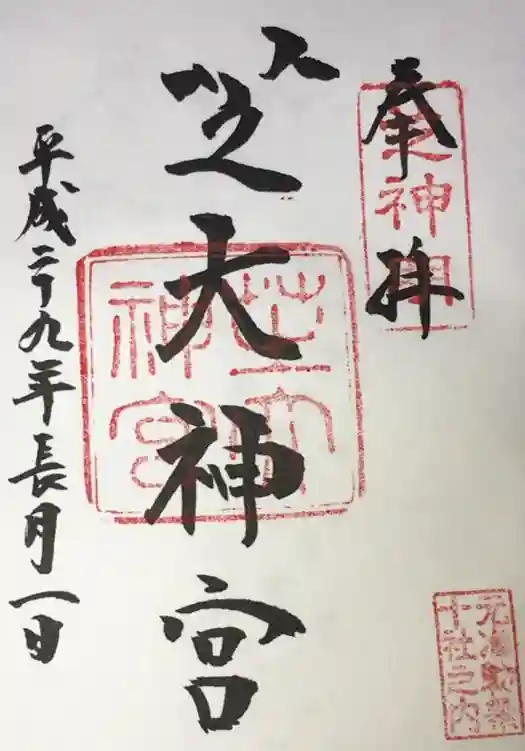 奉拝
芝神明
芝大神宮
芝大神宮
平成二十九年長月一日
元准勅祭
十社之内